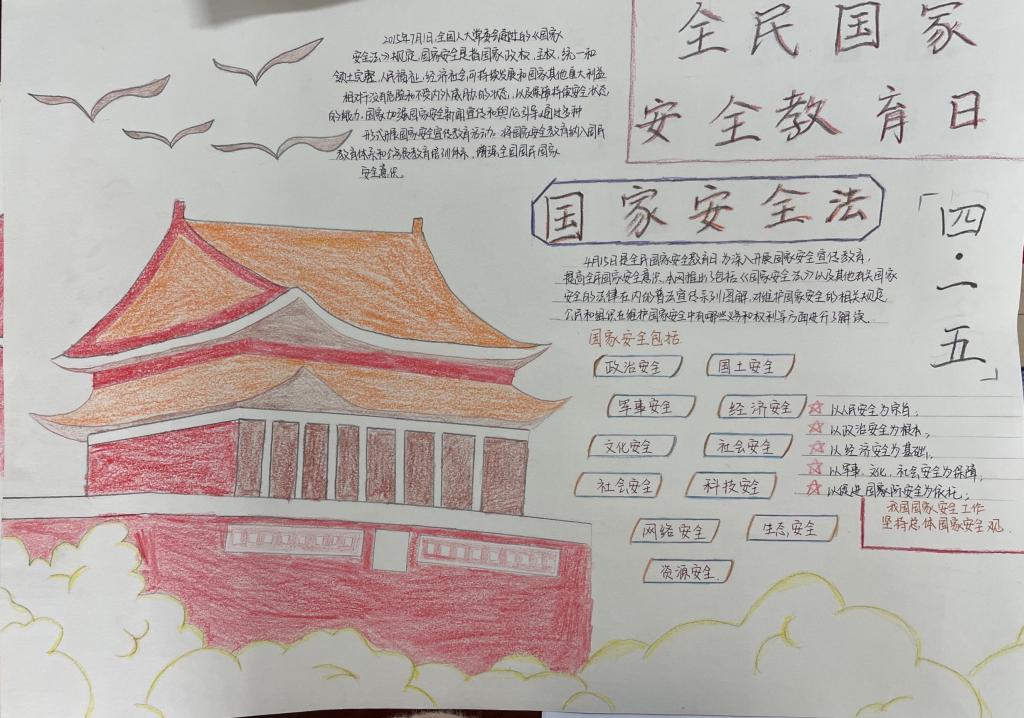 全民国家
安全教育日
2015年7月1日,全国人大常委会通过的《国家
安全法》规定,国家安全是指国家政权、主权、统一和
领土完整、人民福祉、经济社会可持续发展和国家其他重大利益
相对处于没有危险和不受内外威胁的状态,以及保障持续安全状态
的能力。国家加强国家安全新闻宣传和舆论引导,通过多种
形式开展国家安全宣传教育活动。将国家安全教育纳入国民
教育体系和公务员教育培训体系,增强全国国民国家
安全意识。
国家安全法
「四·一五」
4月15日是全民国家安全教育日,为深入开展国家安全宣传教育,
提高全民国家安全意识,本网推出了包括《国家安全法》以及其他有关国家
安全的法律在内的普法宣传系列图解,对维护国家安全的相关规定
公民和组织在维护国家安全中有哪些义务和权利等方面进行了解读
国家安全包括
政治安全 国土安全
军事安全 经济安全
文化安全 社会安全
社会安全 科技安全
网络安全 生态安全
资源安全
以人民安全为宗旨;
以政治安全为根本;
以经济安全为基础;
以军事、文化、社会安全为保障;
以促进国家安全为依托;
我国国家安全工作
坚持总体国家安全观